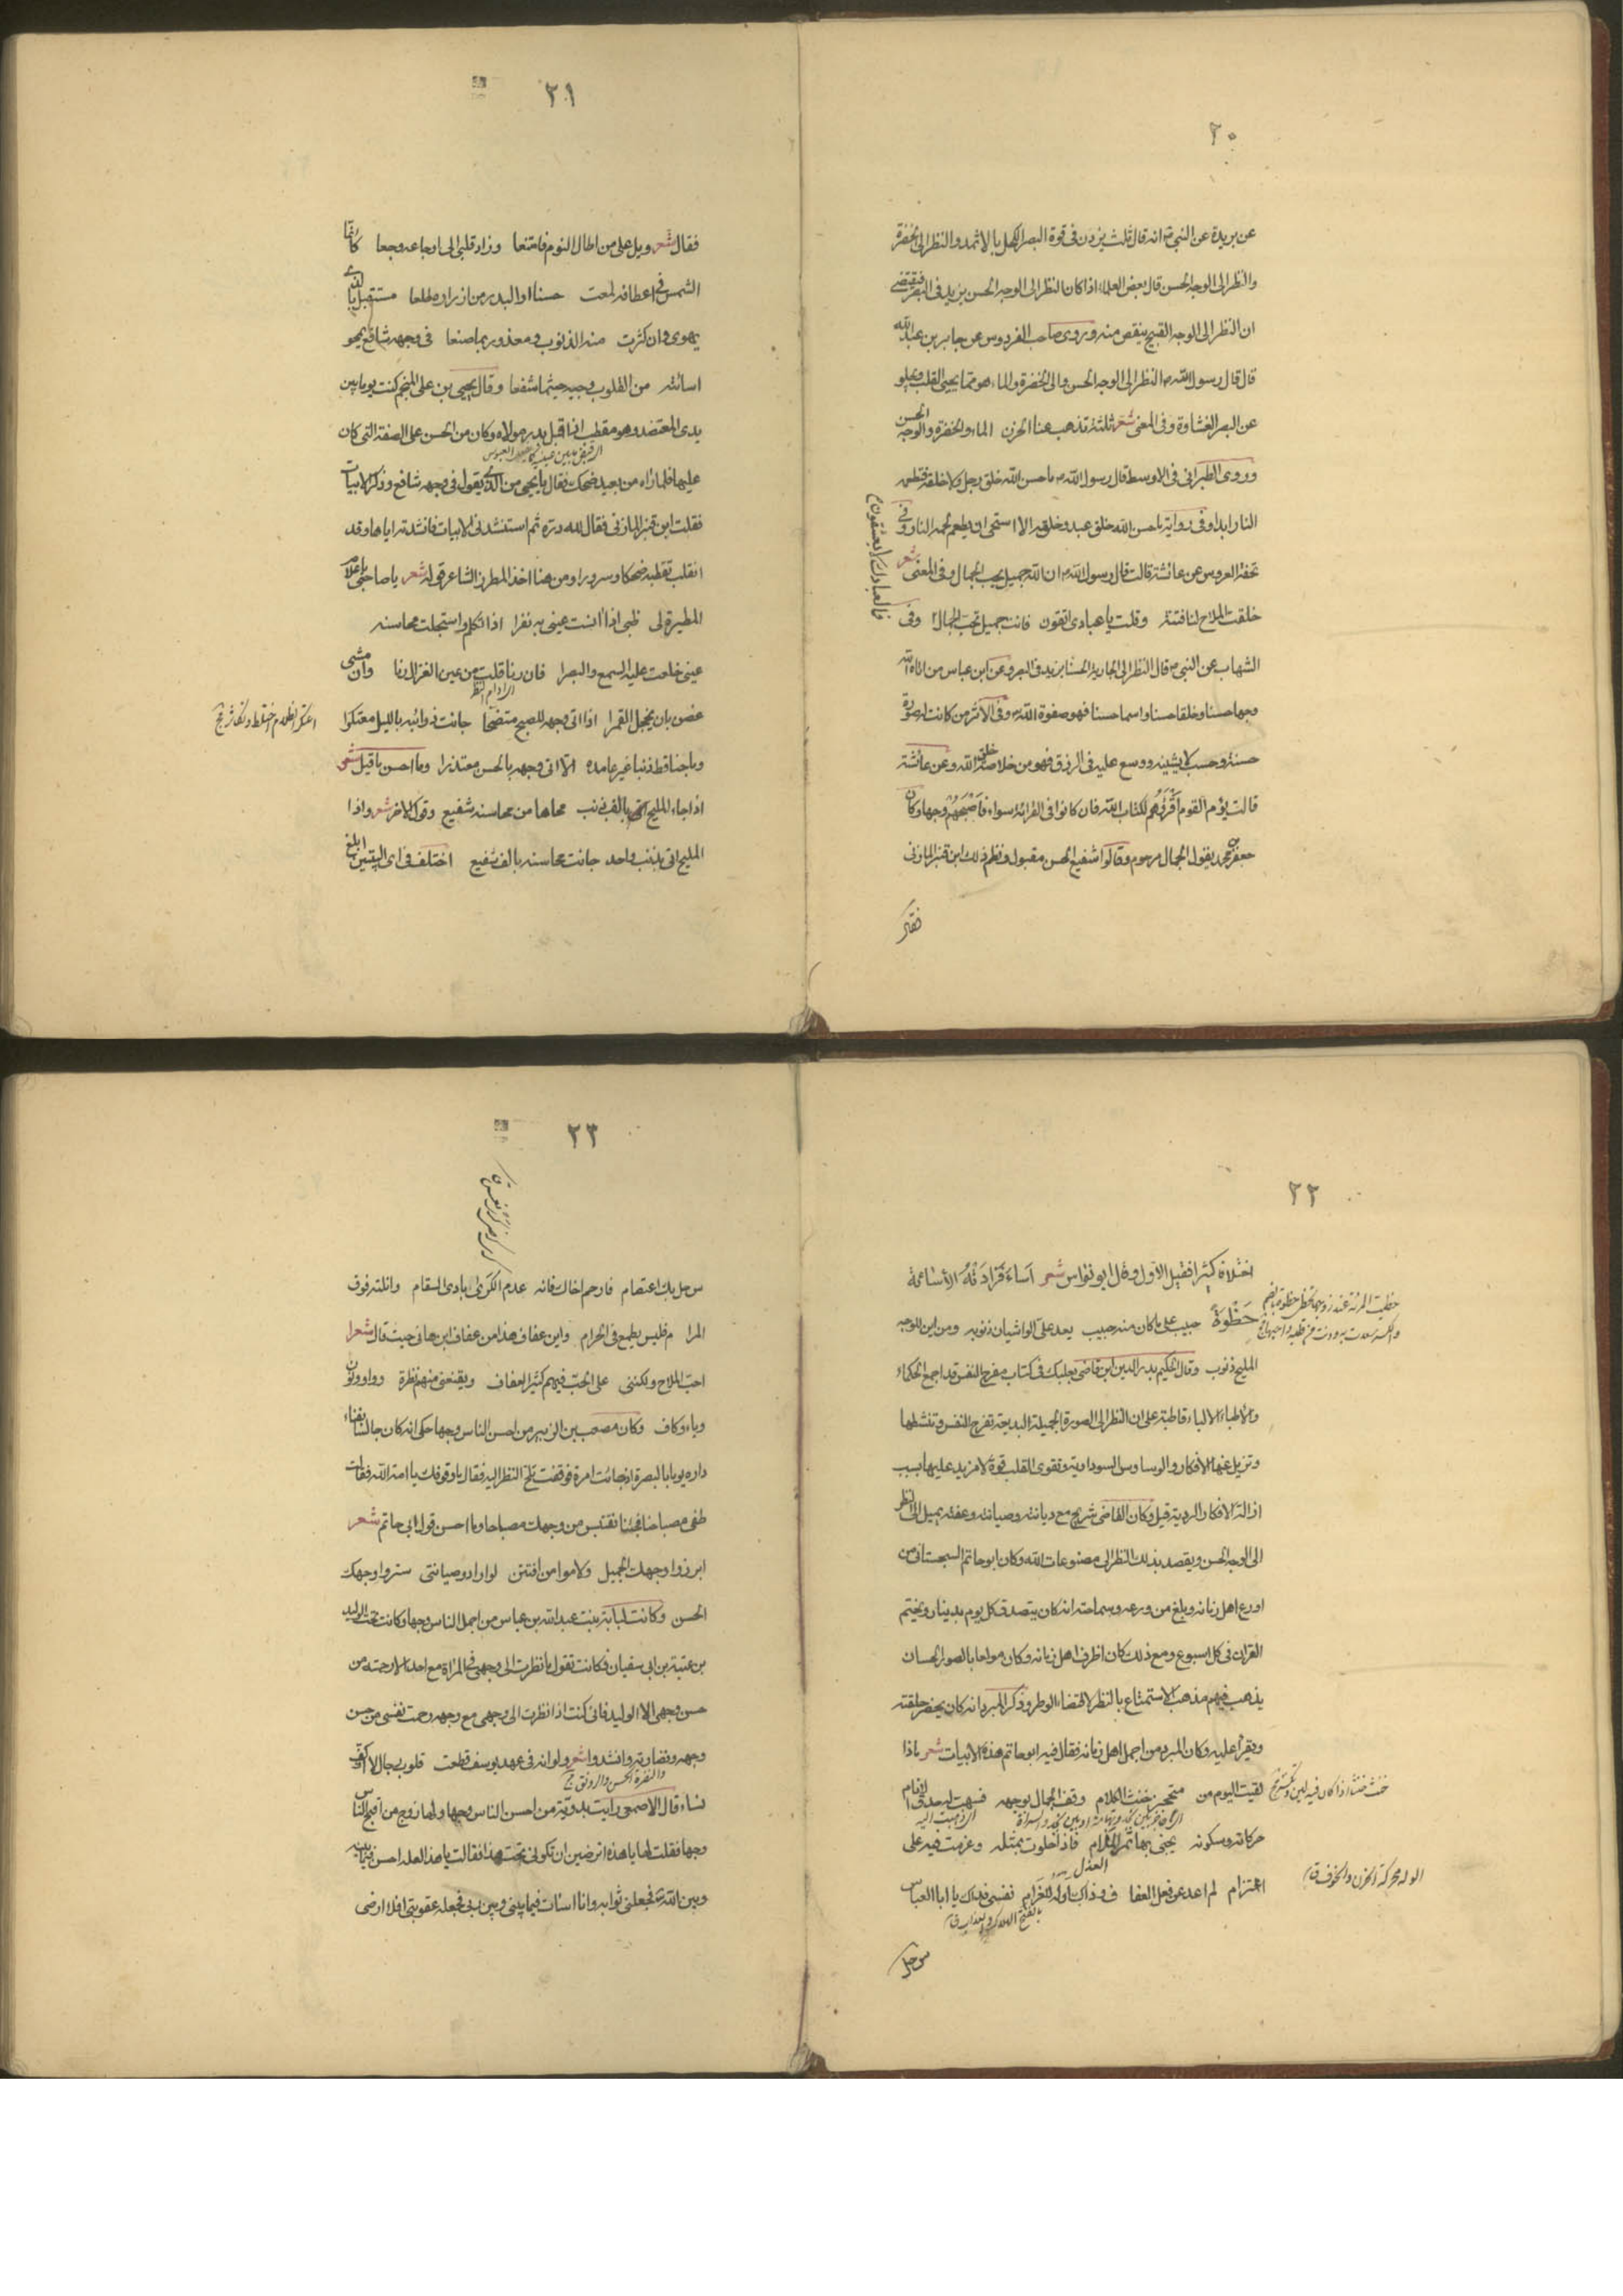 ٢٠
عن بريدة عن النبي ص انه قال ثلث يزدن فى قوة البصر الكحل بالاثمد والنظر الى الخضرة
والنظر الى الوجه الحسن قال بعض العلماء اذا كان النظر الى الوجه الحسن يزيد فى البصر فيقتضى
ان النظر الى الوجه القبيح ينقص منه وروى صاحب الفردوس عن جابر بن عبد الله
قال قال رسول الله ص النظر الى الوجه الحسن والى الخضرة والماء هو مما يحيى القلب ويجلو
عن البصر الغشاوة وفى المعنى شعر ثلثة تذهب عنا الحزن الماء والخضرة والوجه الحسن
وروى الطبرانى فى الاوسط قال رسول الله ص ما حسن الله خلق رجل ولا خلقه فتطعمه
النار ابدا وفى رواية ما حسن الله خلق عبد وخلقه الا استحى ان يطعم لحمه النار وفى
تحفة العروس عن عائشة قالت قال رسول الله ص ان الله جميل يحب الجمال وفى المعنى شعر
خلقت الملاح لنا فتنة وقلت يا عبادى اتقون فانت جميل تحب الجمال وفى
فما لعبادك لا يعشقون
الشهاب عن النبي ص قال النظر الى الجارية الحسنا يزيد فى البصر وعن ابن عباس من اتاه الله
وجها حسنا وخلقا حسنا واسما حسنا فهو صفوة الله وفى الاثر من كانت له صورة
حسنة وحسب لا يشينه ووسع عليه فى الرزق فهو من خلاصة خلق الله وعن عائشة
قالت يؤم القوم اقرئهم لكتاب الله فان كانوا فى القرائة سواء فاصبحهم وجها وكان
جعفر بن محمد يقول الجمال مرحوم وقالوا شفيع الحسن مقبول ونظم ذلك ابن قنبر المازنى
فقال
٢١
فقال شعر ويل على من اطال النوم فامتنعا وزاد قلبى الى اوجاعه وجعا كانما
الشمس فى اعطافه لمعت حسنا او البدر من ازراره طلعا مستقبل بالذى
يهوى وان كثرت منه الذنوب ومعذور بما صنعا فى وجهه شافع يمحو
اسائته من القلوب وجيه حيثما شفعا وقال يحيى بن على المنجم كنت يوما بين
يدى المعتضد وهو مقطب اذا اقبل بدر مولاه وكان من الحسن على الصفة التى كان
عليها فلما راه من بعيد ضحك فقال يا يحيى من الذى يقول فى وجهه شافع وذكر الابيات
فقلت ابن قنبر المازنى فقال لله دره ثم استنشدنى الابيات فانشدته اياها وقد
انقلب تقطبه ضحكا وسرورا ومن هنا اخذ المطرز الشاعر قوله شعر يا صاحبى
المطيرة لى ظبى اذا انست عينى به نفرا اذا تكلم واستجلت محاسنه
عينى خلعت عليه السمع والبصرا فان رنا قلت من عين الغزال رنا وان مشى
غصن بان يخجل القمرا اذا اتى وجهه للصبح متضحا جائت ذوائبه بالليل معتكرا
اعتكر الظلام اختلط
وما جنا قط ذنبا غير عامده الا اتى وجهه بالحسن معتذرا وما احسن ما قيل شعر
اذا جاء المليح اتى بالف ذنب محاها من محاسنه شفيع وقول الاخر شعر واذا
المليح اتى بذنب واحد جائت محاسنه بالف شفيع اختلف فى اى البيتين ابلغ
٢٢
اختلافا كثيرا فقيل الاول وقال ابو نواس شعر اساء فزادته الاسائة
حظوة حبيب على ما كان منه حبيب يعد على الواشيان ذنوبه ومن اين للوجه
المليح ذنوب وقال الحكيم بدر الدين ابن قاضى بعلبك فى كتاب مفرح النفس قد اجمع الحكماء
والاطباء الالباء قاطبة على ان النظر الى الصورة الجميلة البديعة تفرح النفس وتنشطها
وتزيل عنها الافكار والوساوس السوداوية وتقوى القلب قوة لا مزيد عليها بسبب
ازالة الافكار الردية قيل وكان القاضى شريح مع ديانته وصيانته وعفته يميل الى النظر
الى الوجه الحسن ويقصد بذلك النظر الى مصنوعات الله وكان ابو حاتم السجستانى من
اورع اهل زمانه وبلغ من ورعه وسماحته انه كان يتصدق كل يوم بدينار ويختم
القران فى كل اسبوع ومع ذلك كان اظرف اهل زمانه وكان مولعا بالصور الحسان
يذهب فيهم مذهب الاستمتاع بالنظر لا قضاء الوطر وذكر المبرد انه كان يحضر حلقته
ويقرأ عليه وكان المبرد من اجمل اهل زمانه فقال فيه ابو حاتم هذه الابيات شعر ماذا
لقيت اليوم من متمجن خنث الكلام وقف الجمال بوجهه فسمت له حدق الانام
حركاته وسكونه يجنى بها ثمر الاثام فاذا خلوت بمثله وعزمت فيه على
اعتزام لم اعد عن فعل العفا ف وذاك اوكد للغرام نفسى فداك يا ابا العباس
الوله محركة الحزن والخوف ق
سو حل
٢٣
س حل بك اعتصام فارحم اخاك فانه عدم الكرى بادى السقام وانلته فوق
المرا م فليس يطمع فى الحرام واين عفاف هذا من عفاف ابن هانى حيث قال شعرا
احب الملاح ولكننى على الحب فيهم كثير العفاف ويقنعنى منهم نظرة وواو ونون
وباء وكاف وكان مصعب بن الزبير من احسن الناس وجها حكى انه كان جالسا بفناء
داره يوما بالبصرة اذ جائت امرة فوقفت تلح النظر اليه فقال ما وقوفك يا امة الله فقالت
طفى مصباحنا فجئنا نقتبس من وجهك مصباحا وما احسن قول ابى حاتم شعر
ابرزوا وجهك الجميل ولاموا من افتتن لو ارادوا صيانتى ستروا وجهك
الحسن وكانت لبابة بنت عبد الله بن عباس من اجمل الناس وجها وكانت تحت الوليد
بن عتبة بن ابى سفيان فكانت تقول ما نظرت الى وجهى فى المراة مع احد الا رحمته من
حسن وجهى الا الوليد فانى كنت اذا نظرت الى وجهى مع وجهه رحمت نفسى من حسن
وجهه ونضارته وانشدوا شعر ولو انه فى عهد يوسف قطعت قلوب رجال لا اكف
نساء قال الاصمعى رايت بدوية من احسن الناس وجها ولها زوج من اقبح الناس
وجها فقلت لها يا هذه اترضين ان تكونى تحت هذا فقالت يا هذا لعله احسن فيما بينه
وبين الله فجعلنى ثوابه وانا اسات فيما بينى وبين ربى فجعله عقوبتى افلا ارضى